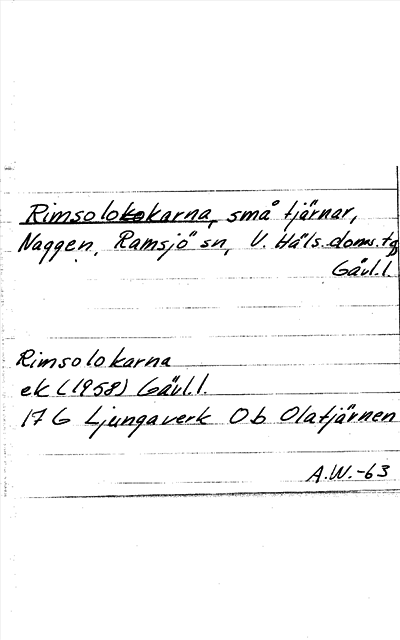 Rimsolokokarna, små tjärnar,
Naggen, Ramsjö sn, V. Häls. doms. tg
Gävl.l.
Rimsolokarna
ek (1958) Gävl.l.
17 G Ljungaverk Ob Olatjärnen
A.W.-63